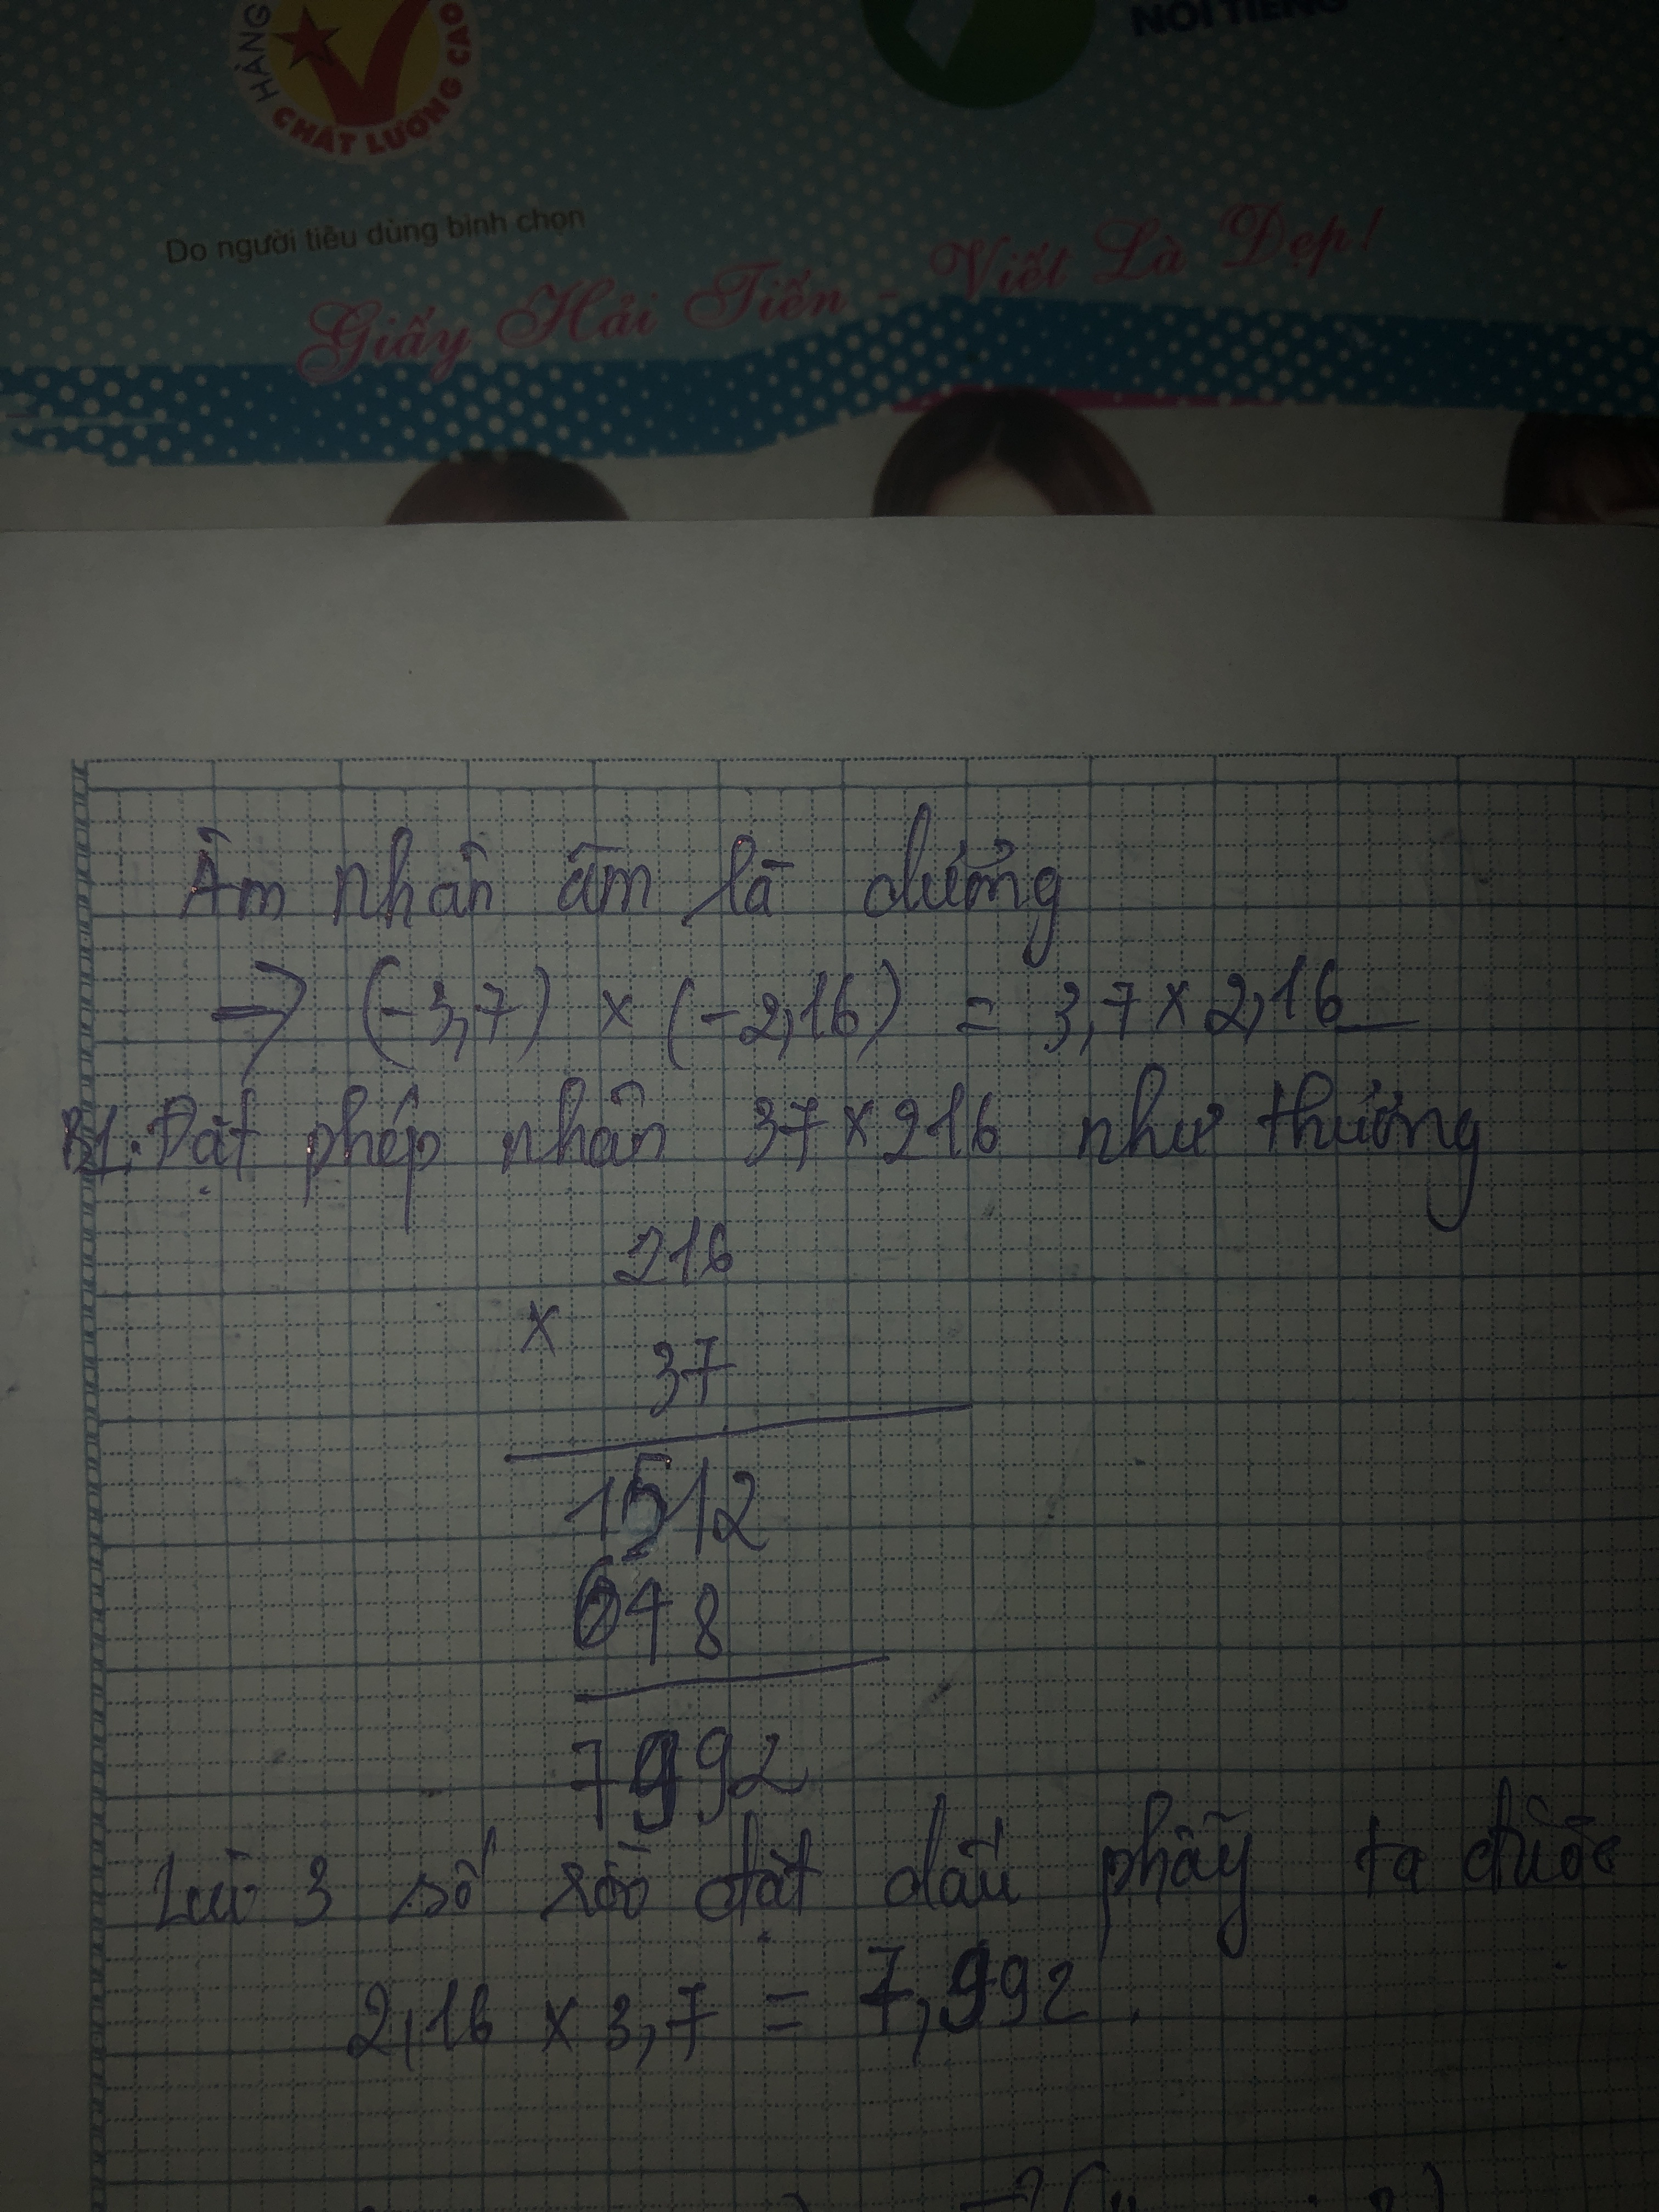 HÀNG
CHẤT LƯỢNG CAO
NỔI TIẾNG
Do người tiêu dùng bình chọn
Giấy Hải Tiến - Viết Là Đẹp!
Âm nhân âm là dương
=> (-3,7) x (-2,16) = 3,7 x 2,16
B1: Đặt phép nhân 37 x 216 như thường
216
x
37
1512
648
7992
Lùi 3 số rồi đặt dấu phẩy ta được
2,16 x 3,7 = 7,992.